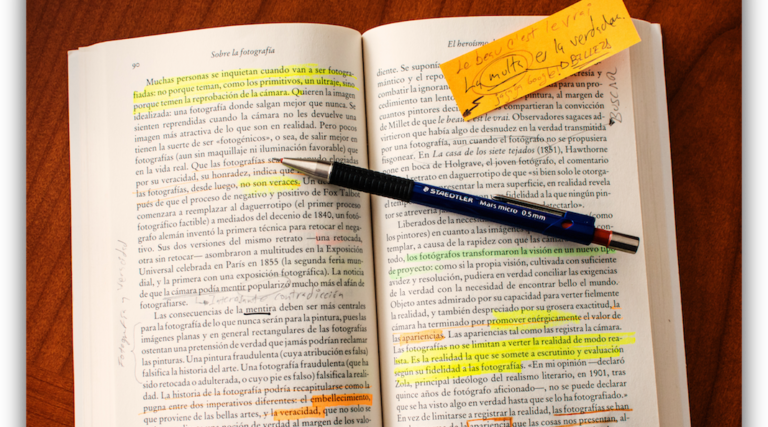 90
Sobre la fotografía
Muchas personas se inquietan cuando van a ser fotogra-
fiadas: no porque teman, como los primitivos, un ultraje, sino
porque temen la reprobación de la cámara. Quieren la imagen
idealizada: una fotografía donde salgan mejor que nunca. Se
sienten reprendidas cuando la cámara no les devuelve una
imagen más atractiva de lo que son en realidad. Pero pocos
tienen la suerte de ser «fotogénicos», o sea, de salir mejor en
fotografías (aun sin maquillaje ni iluminación favorable) que
en la vida real. Que las fotografías sean elogiadas
por su veracidad, su honradez, indica que
las fotografías, desde luego, no son veraces. Un
pués de que el proceso de negativo y positivo de Fox Talbot
comenzara a reemplazar al daguerrotipo (el primer proceso
fotográfico factible) a mediados del decenio de 1840, un fotó-
grafo alemán inventó la primera técnica para retocar el nega-
tivo. Sus dos versiones del mismo retrato —una retocada,
otra sin retocar— asombraron a multitudes en la Exposición
Universal celebrada en París en 1855 (la segunda feria mun-
dial, y la primera con una exposición fotográfica). La noticia
de que la cámara podía mentir popularizó mucho más el afán de
fotografiarse.
Las consecuencias de la mentira deben ser más centrales
para la fotografía de lo que nunca serán para la pintura, pues las
imágenes planas y en general rectangulares de las fotografías
ostentan una pretensión de verdad que jamás podrían reclamar
las pinturas. Una pintura fraudulenta (cuya atribución es falsa)
falsifica la historia del arte. Una fotografía fraudulenta (que ha
sido retocada o adulterada, o cuyo pie es falso) falsifica la reali-
dad. La historia de la fotografía podría recapitularse como la
pugna entre dos imperativos diferentes: el embellecimiento,
que proviene de las bellas artes, y la veracidad, que no solo se
El heroísmo
Lo beau c'est le vrai
La multa es la verdad
BELLEZA
Buscar
diente. Se suponía
mántico y el repo
combatir la ignoran
cedimiento tan lento
cuantos pintores, al margen de
compartieran la convicción
de Millet de que le beau c'est le vrai. Observadores sagaces ad-
virtieron que había algo de desnudez en la verdad transmitida
por una fotografía, aun cuando el fotógrafo no se propusiera
fisgonear. En La casa de los siete tejados (1851), Hawthorne
pone en boca de Holgrave, el joven fotógrafo, el comentario
retrato en daguerrotipo de que «si bien solo le otorga-
representar la mera superficie, en realidad revela
STAEDTLER Mars micro 0.5mm
Liberados de la necesidad de
los pintores) en cuanto a las imágenes
templar, a causa de la rapidez con que las
todo, los fotógrafos transformaron la visión en un nuevo tipo
de proyecto: como si la propia visión, cultivada con suficiente
avidez y resolución, pudiera en verdad conciliar las exigencias
de la verdad con la necesidad de encontrar bello el mundo.
Objeto antes admirado por su capacidad para verter fielmente
la realidad, y también despreciado por su grosera exactitud, la
cámara ha terminado por promover enérgicamente el valor de
las apariencias. Las apariencias tal como las registra la cámara.
Las fotografías no se limitan a verter la realidad de modo rea-
lista. Es la realidad la que se somete a escrutinio y evaluación
según su fidelidad a las fotografías. «En mi opinión —declaró
Zola, principal ideólogo del realismo literario, en 1901, tras
quince años de fotógrafo aficionado—, no se puede declarar
que se ha visto algo en verdad hasta que se lo ha fotografiado.»
En vez de limitarse a registrar la realidad, las fotografías se han
apariencias que las cosas nos presentan,